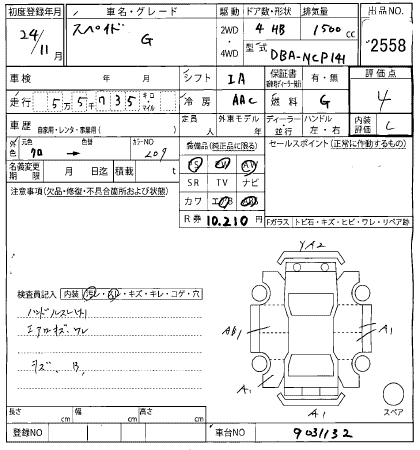 初度登録年月 車名・グレード 駆動 ドア数・形状 排気量 出品NO.
24/11月 スペイド G 2WD・4WD 4 HB 1500cc 2558
型式 DBA-NCP141
車検 年 月 シフト IA 保証書 有・無 評価点
走行 5万5千735 キロ・マイル 冷房 AAC 燃料 G 4
車歴 自家用・レンタ・事業用( ) 定員 人 外車モデル 年 ディーラー・並行 ハンドル 左・右 内装評価 C
外色 元色 クロ → 色替 カラーNO 209 装備品(純正品に限る) セールスポイント(正常に作動するもの)
PS PW AW
名義変更期限 月 日迄 積載 t SR TV ナビ
注意事項(欠品・修復・不具合箇所および状態) カワ エアB
R券 10.210円 Fガラス トビ石・キズ・ヒビ・ワレ・リペア跡
YA2
検査員記入 内装 汚レ・スレ・キズ・キレ・コゲ・穴
ハンドルスレ
エアロキズ・ワレ
キズ、B,
AB1 A1
A1
A1
スペア
長さ cm 幅 cm 高さ cm
登録NO 車台NO 9031132